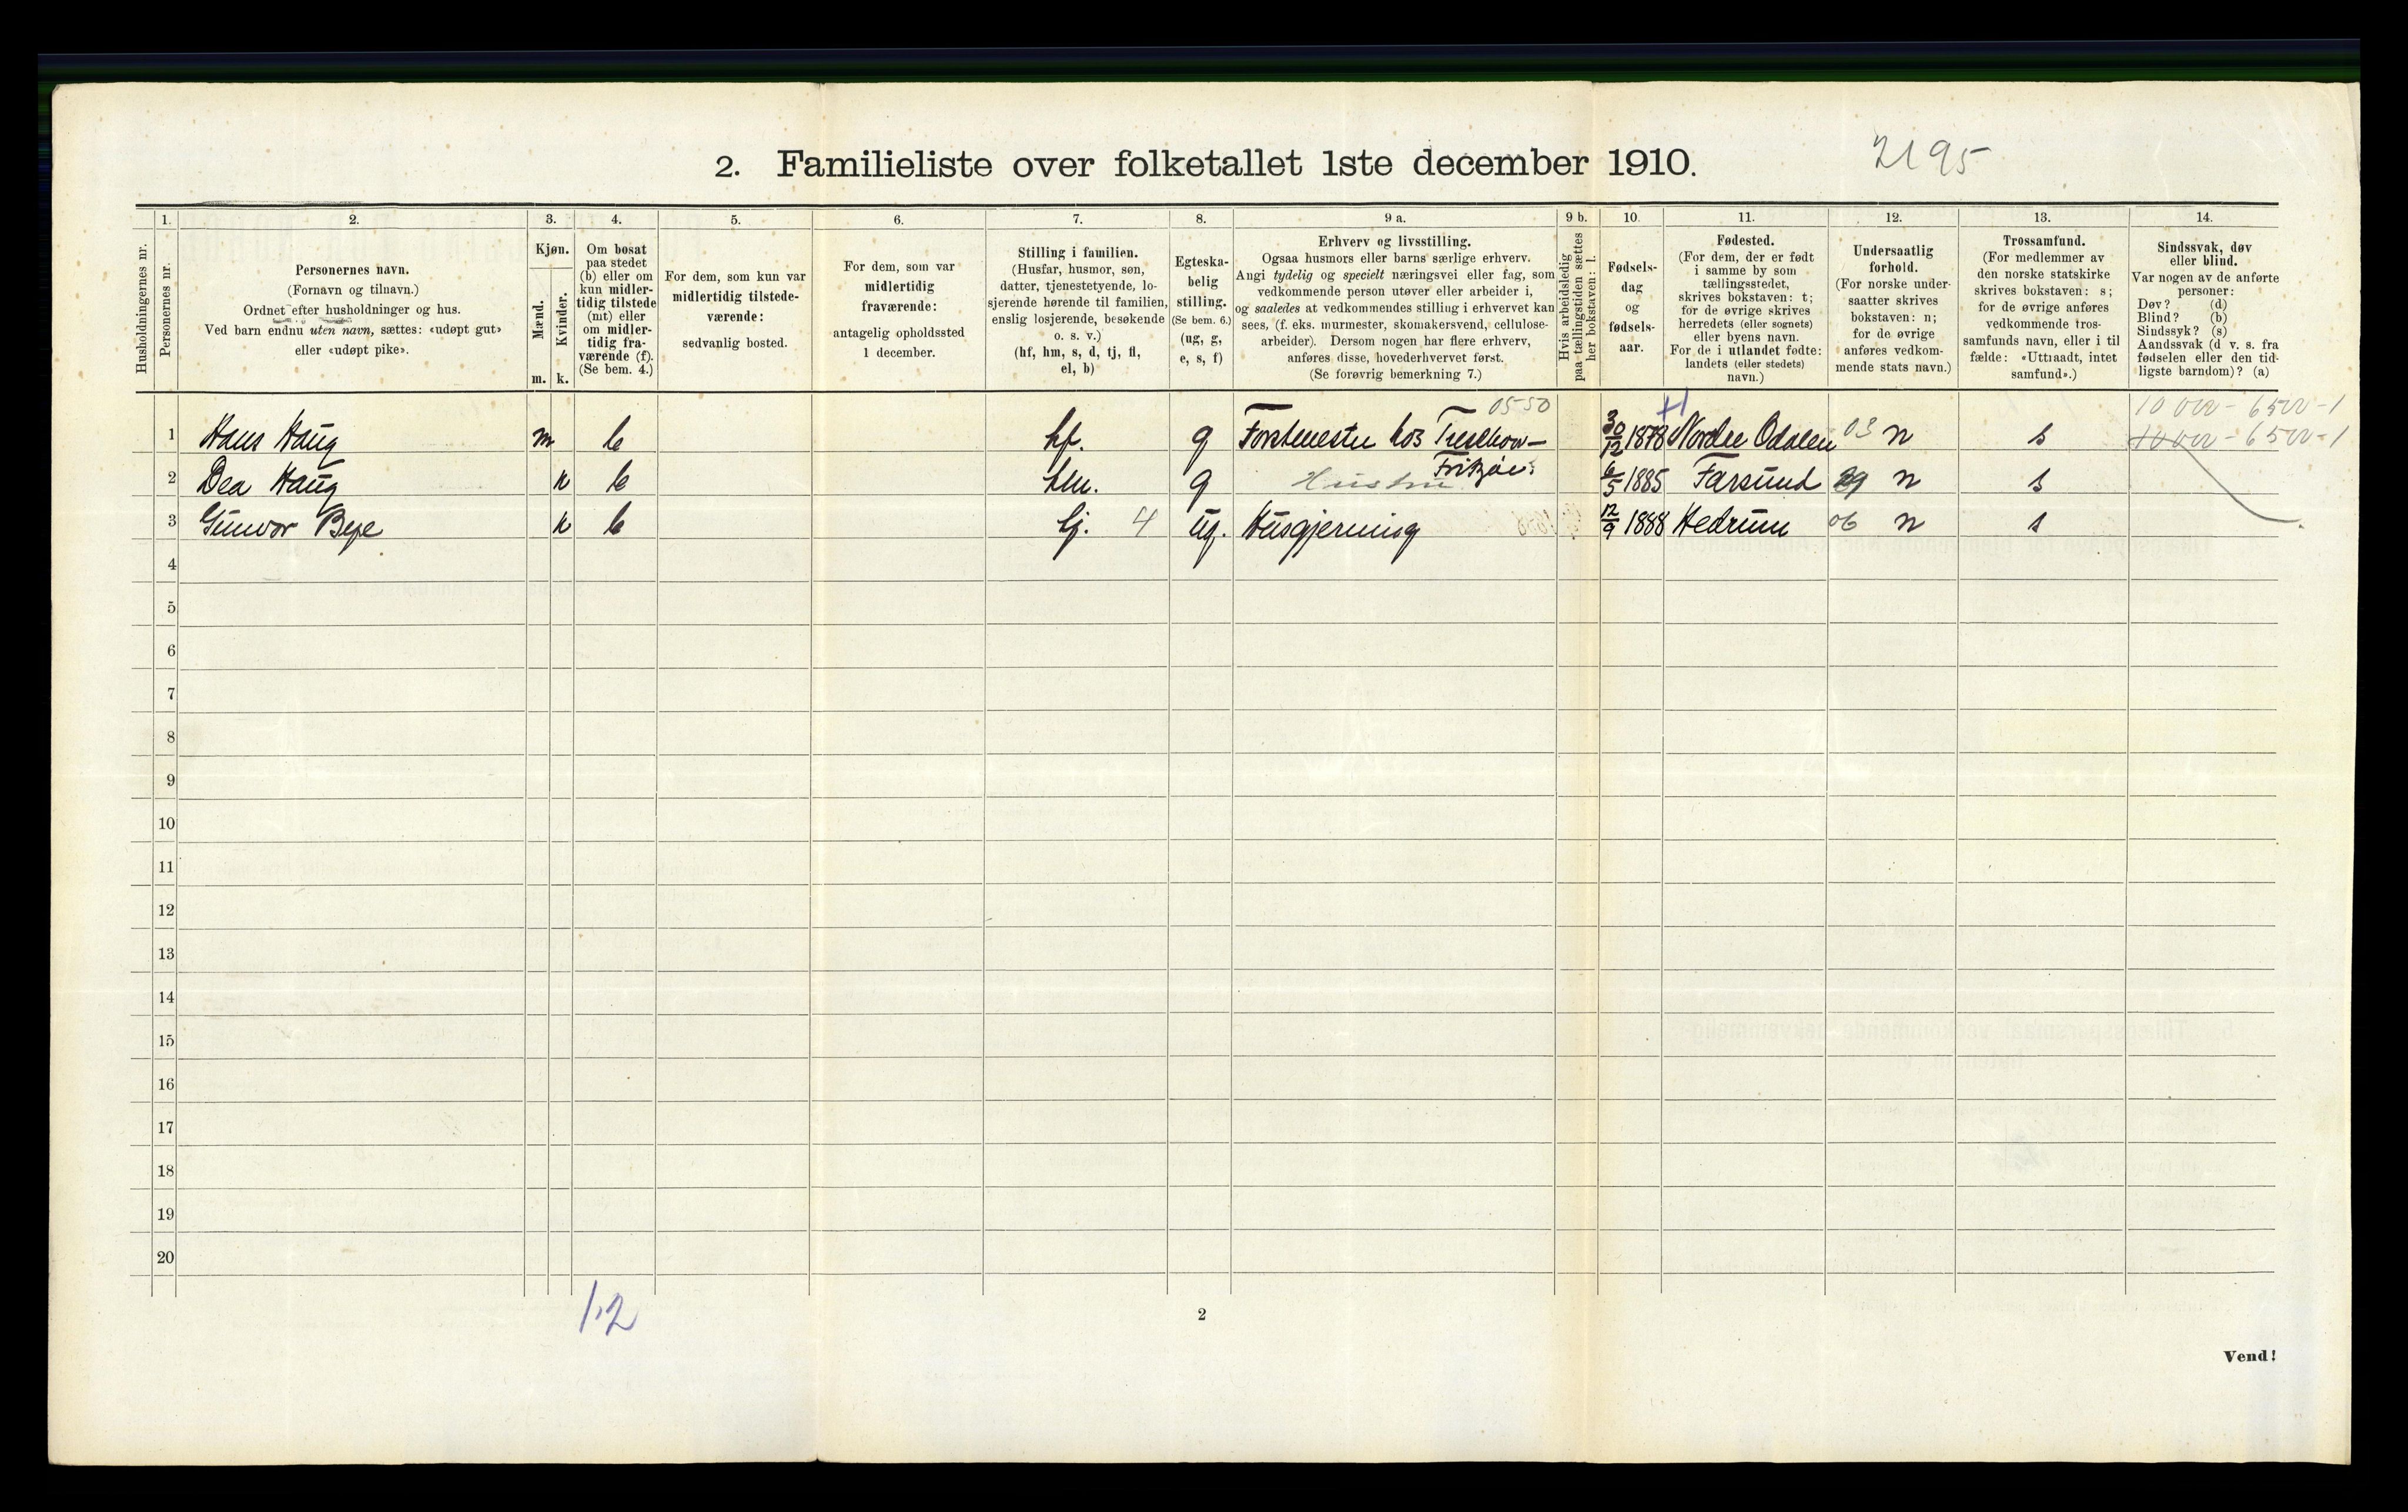 2. Familieliste over folketallet 1ste december 1910.
2195
Husholdningernes nr.
1.
Personernes nr.
2.
Personernes navn.
(Fornavn og tilnavn.)
Ordnet efter husholdninger og hus.
Ved barn endnu uten navn, sættes: «udøpt gut»
eller «udøpt pike».
3.
Kjøn.
Mænd.
Kvinder.
m. k.
4.
Om bosat
paa stedet
(b) eller om
kun midler-
tidig tilstede
(mt) eller
om midler-
tidig fra-
værende (f).
(Se bem. 4.)
5.
For dem, som kun var
midlertidig tilstede-
værende:
sedvanlig bosted.
6.
For dem, som var
midlertidig
fraværende:
antagelig opholdssted
1 december.
7.
Stilling i familien.
(Husfar, husmor, søn,
datter, tjenestetyende, lo-
sjerende hørende til familien,
enslig losjerende, besøkende
o. s. v.)
(hf, hm, s, d, tj, fl,
el, b)
8.
Egteska-
belig
stilling.
(Se bem. 6.)
(ug, g,
e, s, f)
9 a.
Erhverv og livsstilling.
Ogsaa husmors eller barns særlige erhverv.
Angi tydelig og specielt næringsvei eller fag, som
vedkommende person utøver eller arbeider i,
og saaledes at vedkommendes stilling i erhvervet kan
sees, (f. eks. murmester, skomakersvend, cellulose-
arbeider). Dersom nogen har flere erhverv,
anføres disse, hovederhvervet først.
(Se forøvrig bemerkning 7.)
9 b.
Hvis arbeidsledig
paa tællingstiden sættes
her bokstaven: l.
10.
Fødsels-
dag
og
fødsels-
aar.
11.
Fødested.
(For dem, der er født
i samme by som
tællingsstedet,
skrives bokstaven: t;
for de øvrige skrives
herredets (eller sognets)
eller byens navn.
For de i utlandet fødte:
landets (eller stedets)
navn.)
12.
Undersaatlig
forhold.
(For norske under-
saatter skrives
bokstaven: n;
for de øvrige
anføres vedkom-
mende stats navn.)
13.
Trossamfund.
(For medlemmer av
den norske statskirke
skrives bokstaven: s;
for de øvrige anføres
vedkommende tros-
samfunds navn, eller i til
fælde: «Uttraadt, intet
samfund».)
14.
Sindssvak, døv
eller blind.
Var nogen av de anførte
personer:
Døv? (d)
Blind? (b)
Sindssyk? (s)
Aandssvak (d v. s. fra
fødselen eller den tid-
ligste barndom)? (a)
0550
10 000 - 6500 - 1
1 Hans Haug m b hf. g Forstmester hos Treschow- 30/12 1878 Nordre Odalen 03 n s 10 000 - 6500 - 1
Fritzøe
2 Dea Haug k b hm. g Hustru 6/5 1885 Farsund n s
3 Gunvor Bepe k b tj. 4 ug. Husgjerning 12/9 1888 Hedrum 06 n s
4
5
6
7
8
9
10
11
12
13
14
15
16
17
18
19
20
1.2
2
Vend!